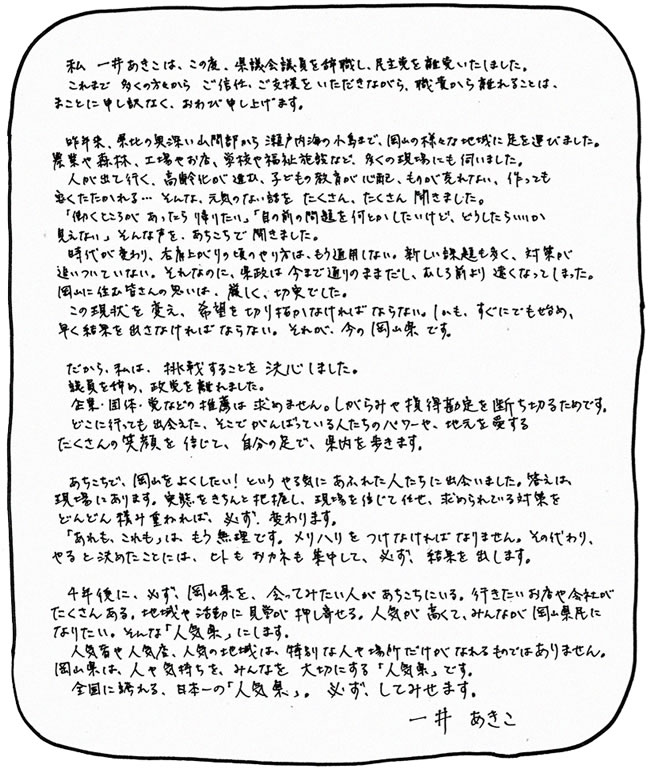 私 一井あきこは、この度、県議会議員を辞職し、民主党を離党いたしました。
これまで 多くの方々から ご信任、ご支援を いただきながら、職責から離れることは、
まことに申し訳なく、おわび申し上げます。
昨年来、県北の奥深い山間部から 瀬戸内海の小島まで、岡山の様々な地域に足を運びました。
農業や森林、工場やお店、学校や福祉施設など、多くの現場にも伺いました。
人が出て行く、高齢化が進む、子どもの教育が心配、ものが売れない、作っても
安くたたかれる… そんな、元気のない話を たくさん、たくさん 聞きました。
「働くところが あったら 帰りたい」「目の前の問題を何とかしたいけど、どうしたらいいか
見えない」そんな声を、あちこちで 聞きました。
時代が変わり、右肩上がりの頃のやり方は、もう通用しない。新しい課題も多く、対策が
追いついていない。それなのに、県政は今まで通りのままだし、むしろ前より 遠くなってしまった。
岡山に住む皆さんの思いは、厳しく、切実でした。
この現状を 変え、希望を切り拓かなければならない。しかも、すぐにでも始め、
早く結果を出さなければならない。それが、今の 岡山県 です。
だから、私は、挑戦することを 決心しました。
議員を辞め、政党を離れました。
企業・団体・党などの推薦は 求めません。しがらみや損得勘定を断ち切るためです。
どこに行っても 出会えた、そこでがんばっている人たちのパワーや、地元を愛する
たくさんの笑顔を信じて、自分の足で、県内を歩きます。
あちこちで、岡山をよくしたい！という やる気に あふれた人たちに出会いました。答えは、
現場にあります。実態をきちんと把握し、現場を信じて任せ、求められている対策を
どんどん積み重ねれば、必ず、変わります。
「あれも、これも」は、もう無理です。メリハリを つけなければなりません。その代わり、
やると決めたことには、ヒトも おカネも 集中して、必ず、結果を出します。
4年後に、必ず、岡山県を、会ってみたい人があちこちにいる。行きたいお店や会社が
たくさんある。地域や活動に見学が 押し寄せる。人気が高くて、みんなが岡山県民に
なりたい。そんな「人気県」にします。
人気者や人気店、人気の地域は、特別な人や場所だけが なれるものではありません。
岡山県は、人や気持ちを、みんなを 大切にする「人気県」です。
全国に誇れる、日本一の「人気県」。必ず、してみせます。
一井 あきこ